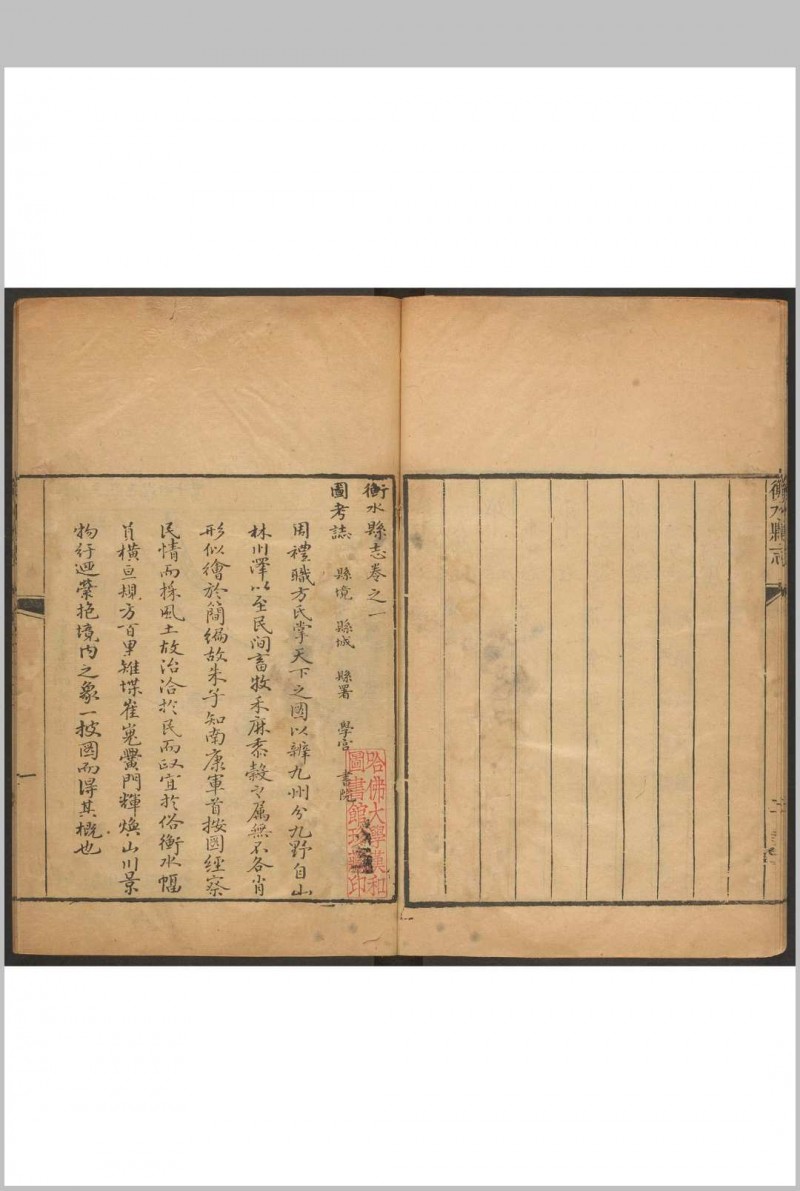 衡水縣志
衡水縣志卷之一
圖考誌 縣境 縣城 縣署 學宮 書院
周禮職方氏掌天下之圖以辨九州分九野自山
林川澤以至民间畜牧禾麻黍穀之属無不各肖
形似繪於簡编故朱子知南康軍首按圖經察
民情而採風土故治洽於民而政宜於俗衡水幅
員横亘槻方百里雉堞崔嵬黌門輝煥山川景
物紆迴縈抱境内之象一披圖而得其概也
哈佛大學漢和
圖書館珍藏印